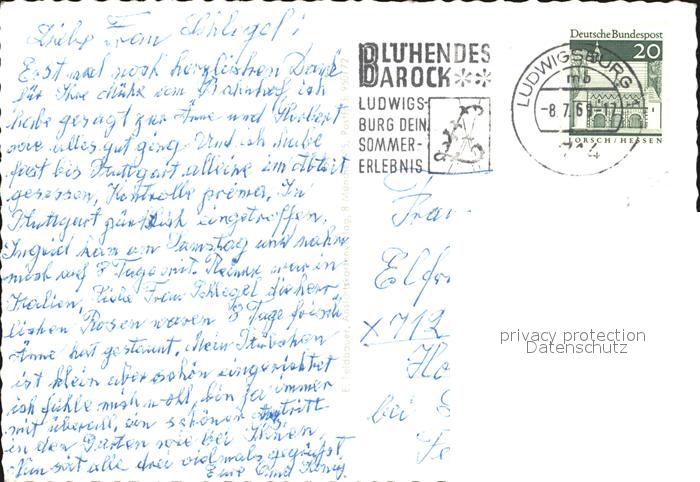 Liebe Frau Schlegel!
Erst mal noch herzlichen Dank
für Ihre Mühe zum Bahnhof, ich
habe gesagt zur Änne und Herbert
wie alles gut ging. Und ich habe
fast bis Stuttgart alleine im Abteil
gesessen, Kontrolle prima. In
Stuttgart pünktlich eingetroffen.
Ingrid kam am Samstag und nahm
mich auf 8 Tage mit. war in
Italien, Liebe Frau Schlegel die herr
lichen Rosen waren 8 Tage frisch
Änne hat gestaunt, Mein Stübchen
ist klein aber schön eingerichtet
ich fühle mich wohl, bin ja immer
mit überall, ein schöner
in den Garten wie bei Ihnen,
Nun seit alle drei vielmals gegrüßt
Eure Oma König
BLÜHENDES
BAROCK
LUDWIGS-
BURG DEIN
SOMMER-
ERLEBNIS
LUDWIGSBURG
mb
-8.7.69-17
714
Deutsche Bundespost
20
LORSCH/HESSEN
Frau
Elfr
X 712
Ho
bei S
privacy protection
Datenschutz